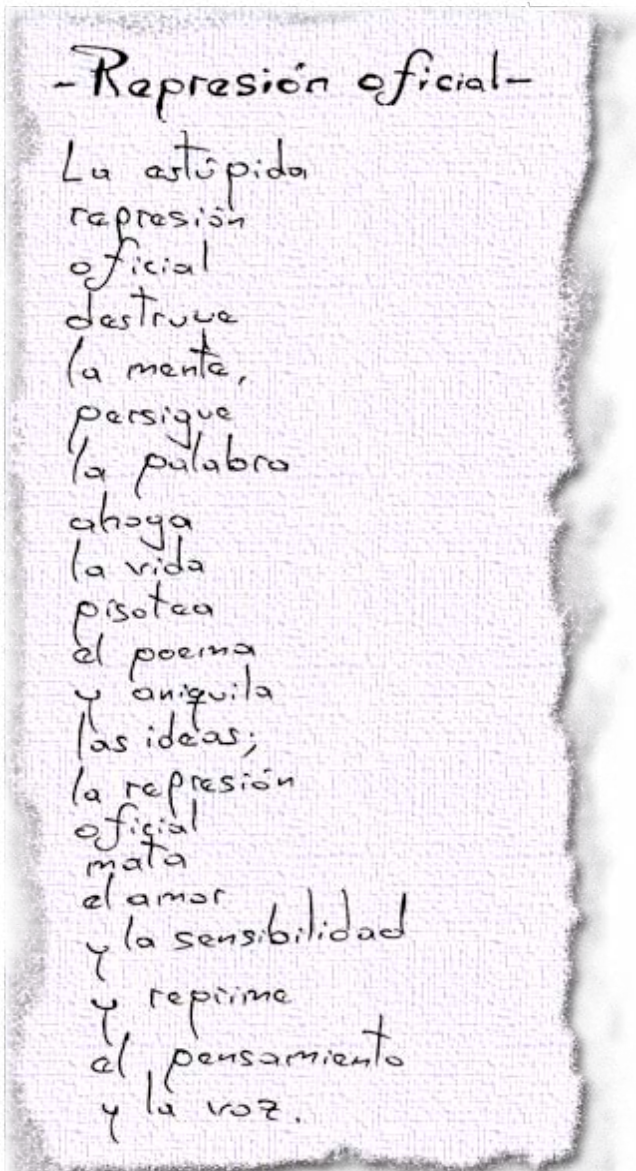 -Represión oficial-
La estúpida
represión
oficial
destruye
la mente,
persigue
la palabra
ahoga
la vida
pisotea
el poema
y aniquila
las ideas;
la represión
oficial
mata
el amor
y la sensibilidad
y reprime
el pensamiento
y la voz.